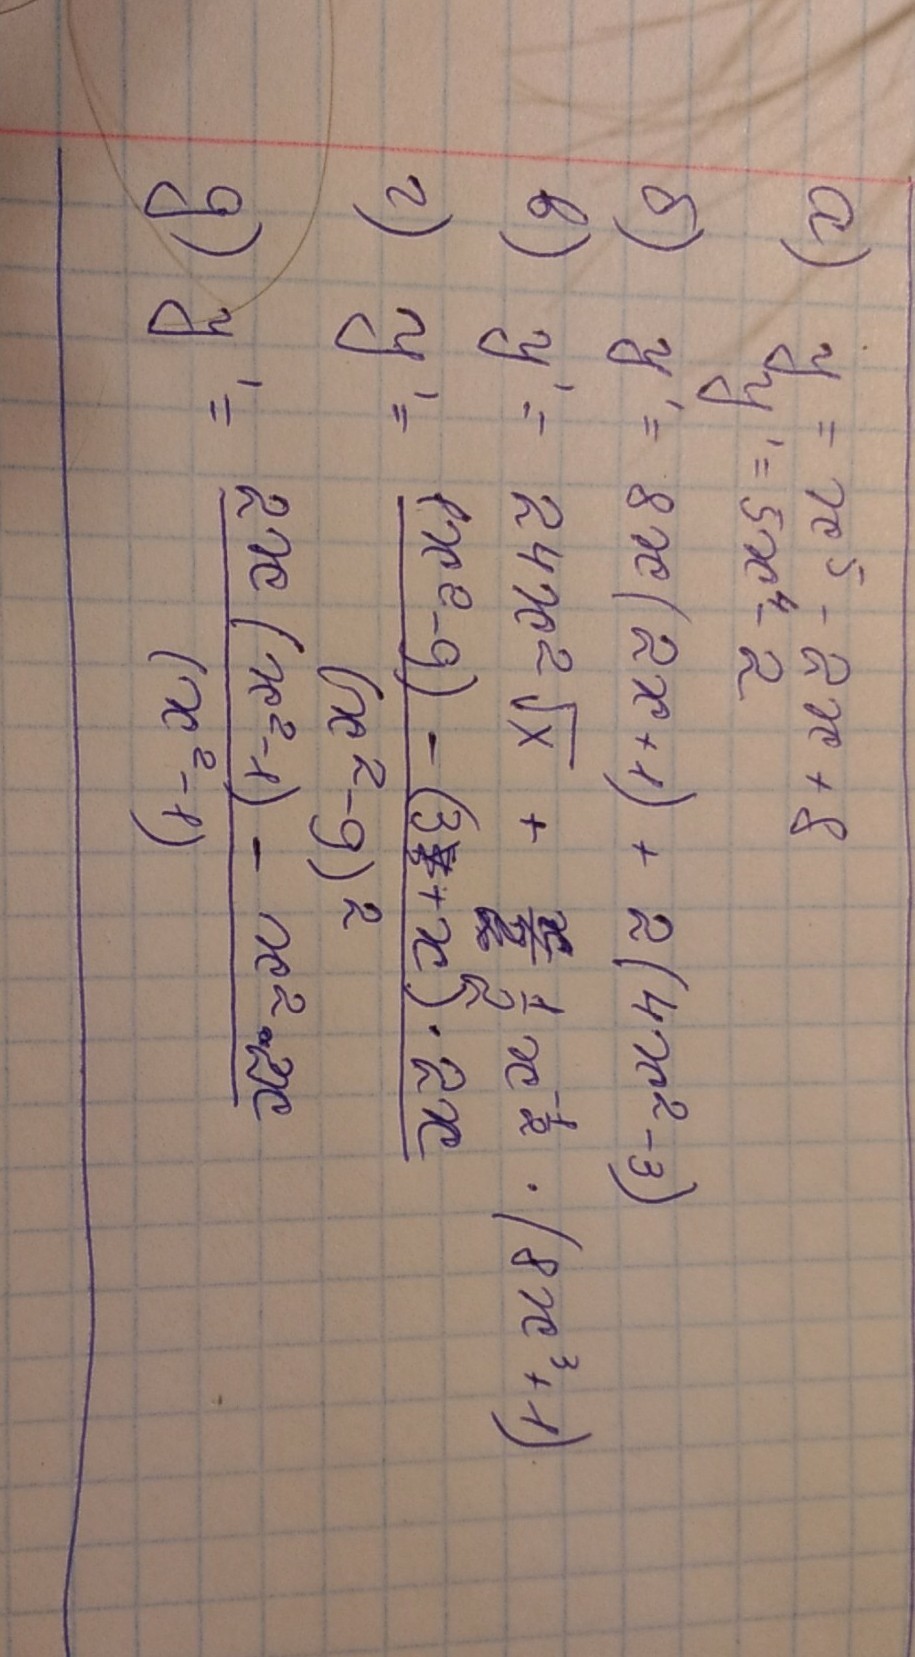 а) y = x⁵ - 2x + 8
y' = 5x⁴ - 2
б) y' = 8x(2x+1) + 2(4x²-3)
в) y' = 24x²√x + 1/2 x^(-1/2) · (8x³+1)
г) y' = ((x²-9) - (3+x)·2x) / (x²-9)²
д) y' = (2x(x²-1) - x²·2x) / (x²-1)